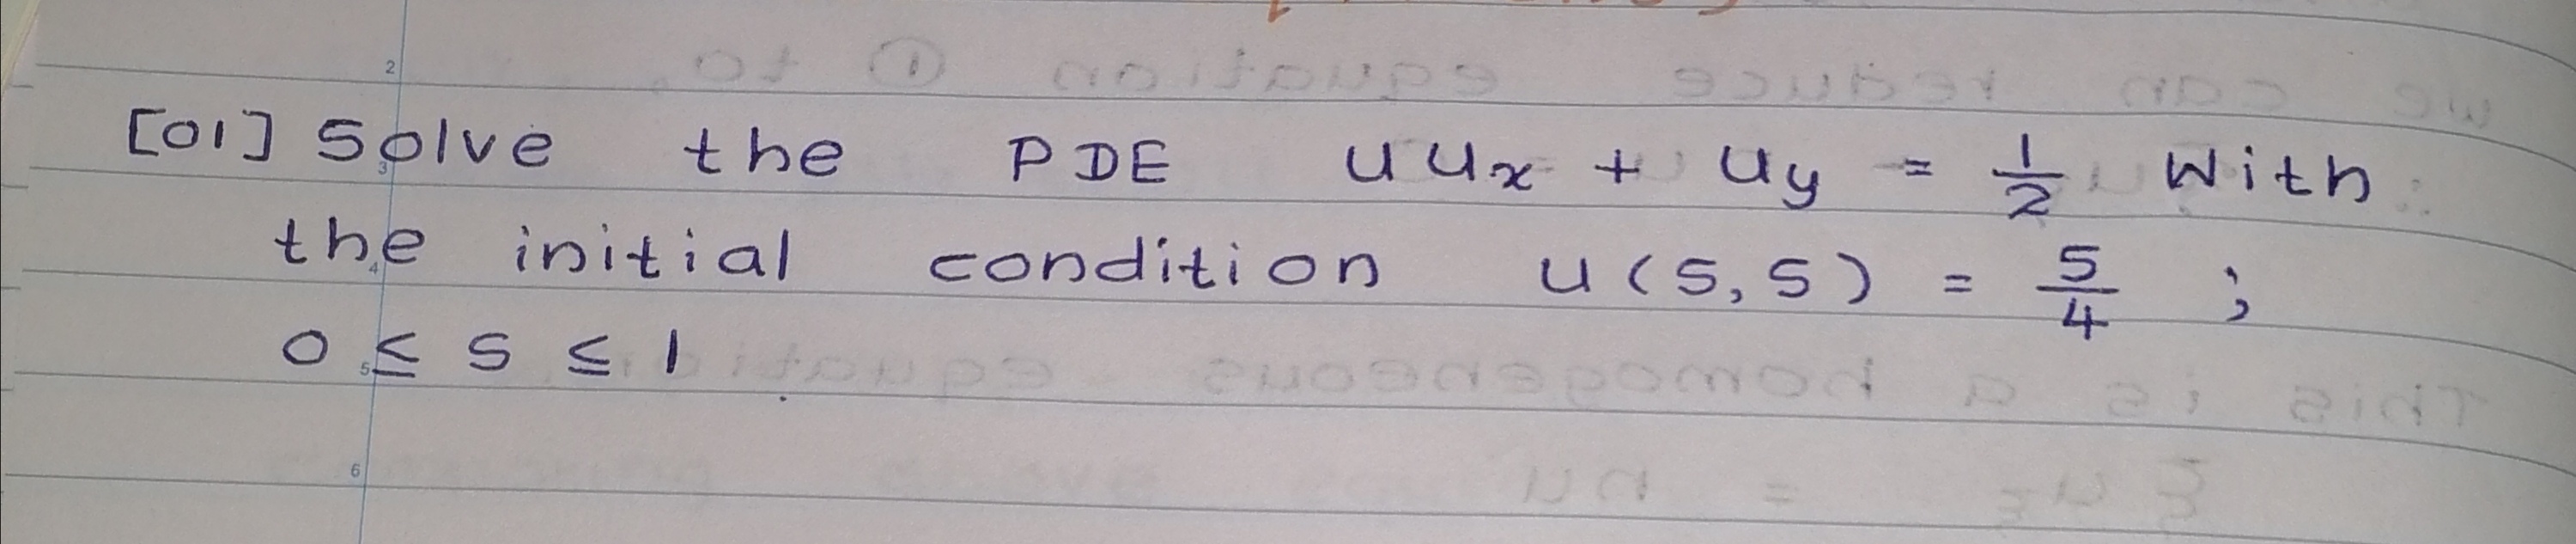 [01] Solve the PDE u uₓ + u_y = 1/2 With
the initial condition u(s,s) = s/4 ;
0 ≤ s ≤ 1